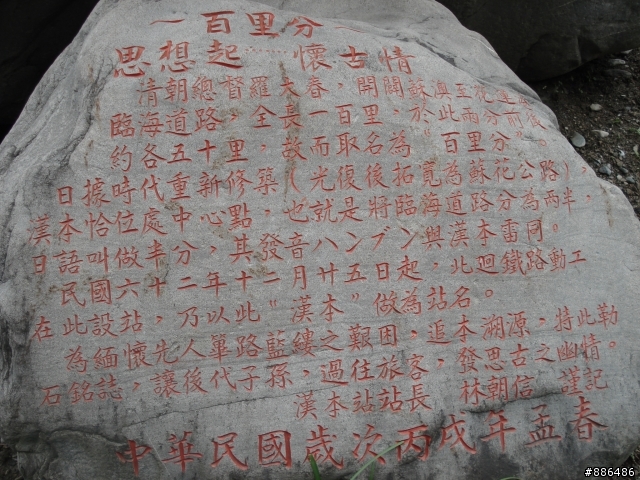 一百里分
思想起……懷古情
清朝總督羅大春，開闢蘇澳至花蓮
臨海道路，全長一百里，於此兩分前後
約各五十里，故而取名為"百里分"。
日據時代重新修築（光復後拓寬為蘇花公路），
漢本恰位處中心點，也就是將臨海道路分為兩半，
日語叫做半分，其發音ハンブン與漢本雷同。
民國六十二年十二月廿五日起，此迴鐵路動工
在此設站，乃以此"漢本"做為站名。
為緬懷先人篳路藍縷之艱困，追本溯源，特此勒
石銘誌，讓後代子孫，過往旅客，發思古之幽情。
漢本站站長 林朝信 謹記
中華民國歲次丙戌年孟春
#886486